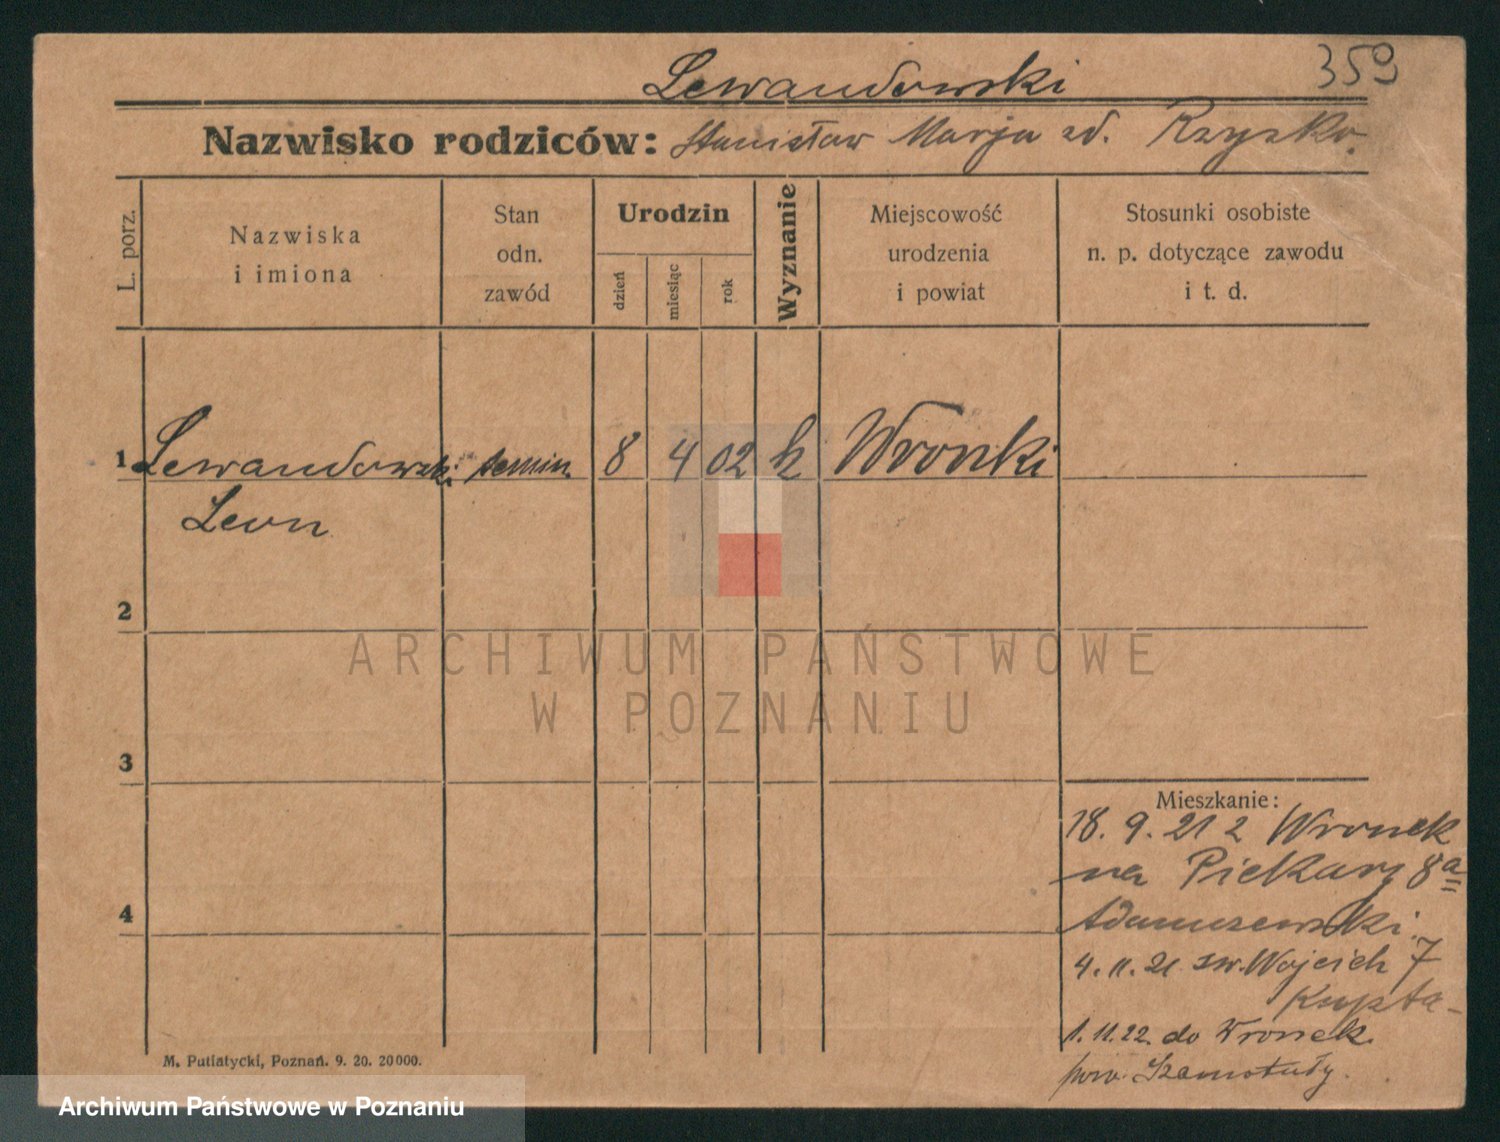 359
Lewandowski
Nazwisko rodziców: Stanisław Marja zd. Rzyszka.
L. porz.
Nazwiska
i imiona
Stan
odn.
zawód
Urodzin
dzień
miesiąc
rok
Wyznanie
Miejscowość
urodzenia
i powiat
Stosunki osobiste
n. p. dotyczące zawodu
i t. d.
1 Lewandowski termin. 8 4 02 k Wronki
Leon
2
3
4
Mieszkanie:
18. 9. 21 z Wronek
na Piekary 8a
Adamszewski.
4. 11. 21 św. Wojciech 7
1. 11. 22. do Wronek.
pow. Szamotuły.
M. Putiatycki, Poznań. 9. 20. 20000.
ARCHIWUM PAŃSTWOWE
W POZNANIU
Archiwum Państwowe w Poznaniu